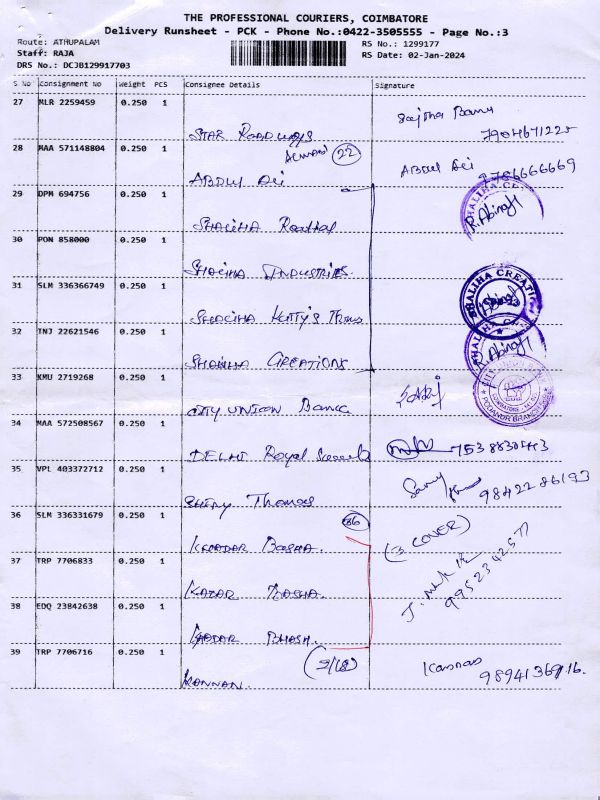 THE PROFESSIONAL COURIERS, COIMBATORE
Delivery Runsheet - PCK - Phone No.:0422-3505555 - Page No.:3
Route: ATHUPALAM
RS No.: 1299177
Staff: RAJA
RS Date: 02-Jan-2024
DRS No.: DCJB129917703
S No Consignment No Weight PCS Consignee Details Signature
27 MLR 2259459 0.250 1
STAR ROADWAYS
7904671225
28 MAA 571148804 0.250 1
22
ABDUL ALi
ABDUL Ali
29 DPM 694756 0.250 1
SHALIHA
30 PON 858000 0.250 1
SHALIHA INDUSTRIES.
31 SLM 336366749 0.250 1
SHALIHA
SHALIHA CREATIONS
32 TNJ 22621546 0.250 1
SHALIHA CREATIONS
33 KMU 2719268 0.250 1
CITY UNION BANK
34 MAA 572508567 0.250 1
DELHI Royal
35 VPL 403372712 0.250 1
SHINY Thomas
9842286193
36 SLM 336331679 0.250 1
86
KHADAR BASHA.
(3 COVER)
37 TRP 7706833 0.250 1
KADAR BASHA.
9952342577
38 EDQ 23842638 0.250 1
KHADAR BHASH.
39 TRP 7706716 0.250 1
KANNAN.
Kannan